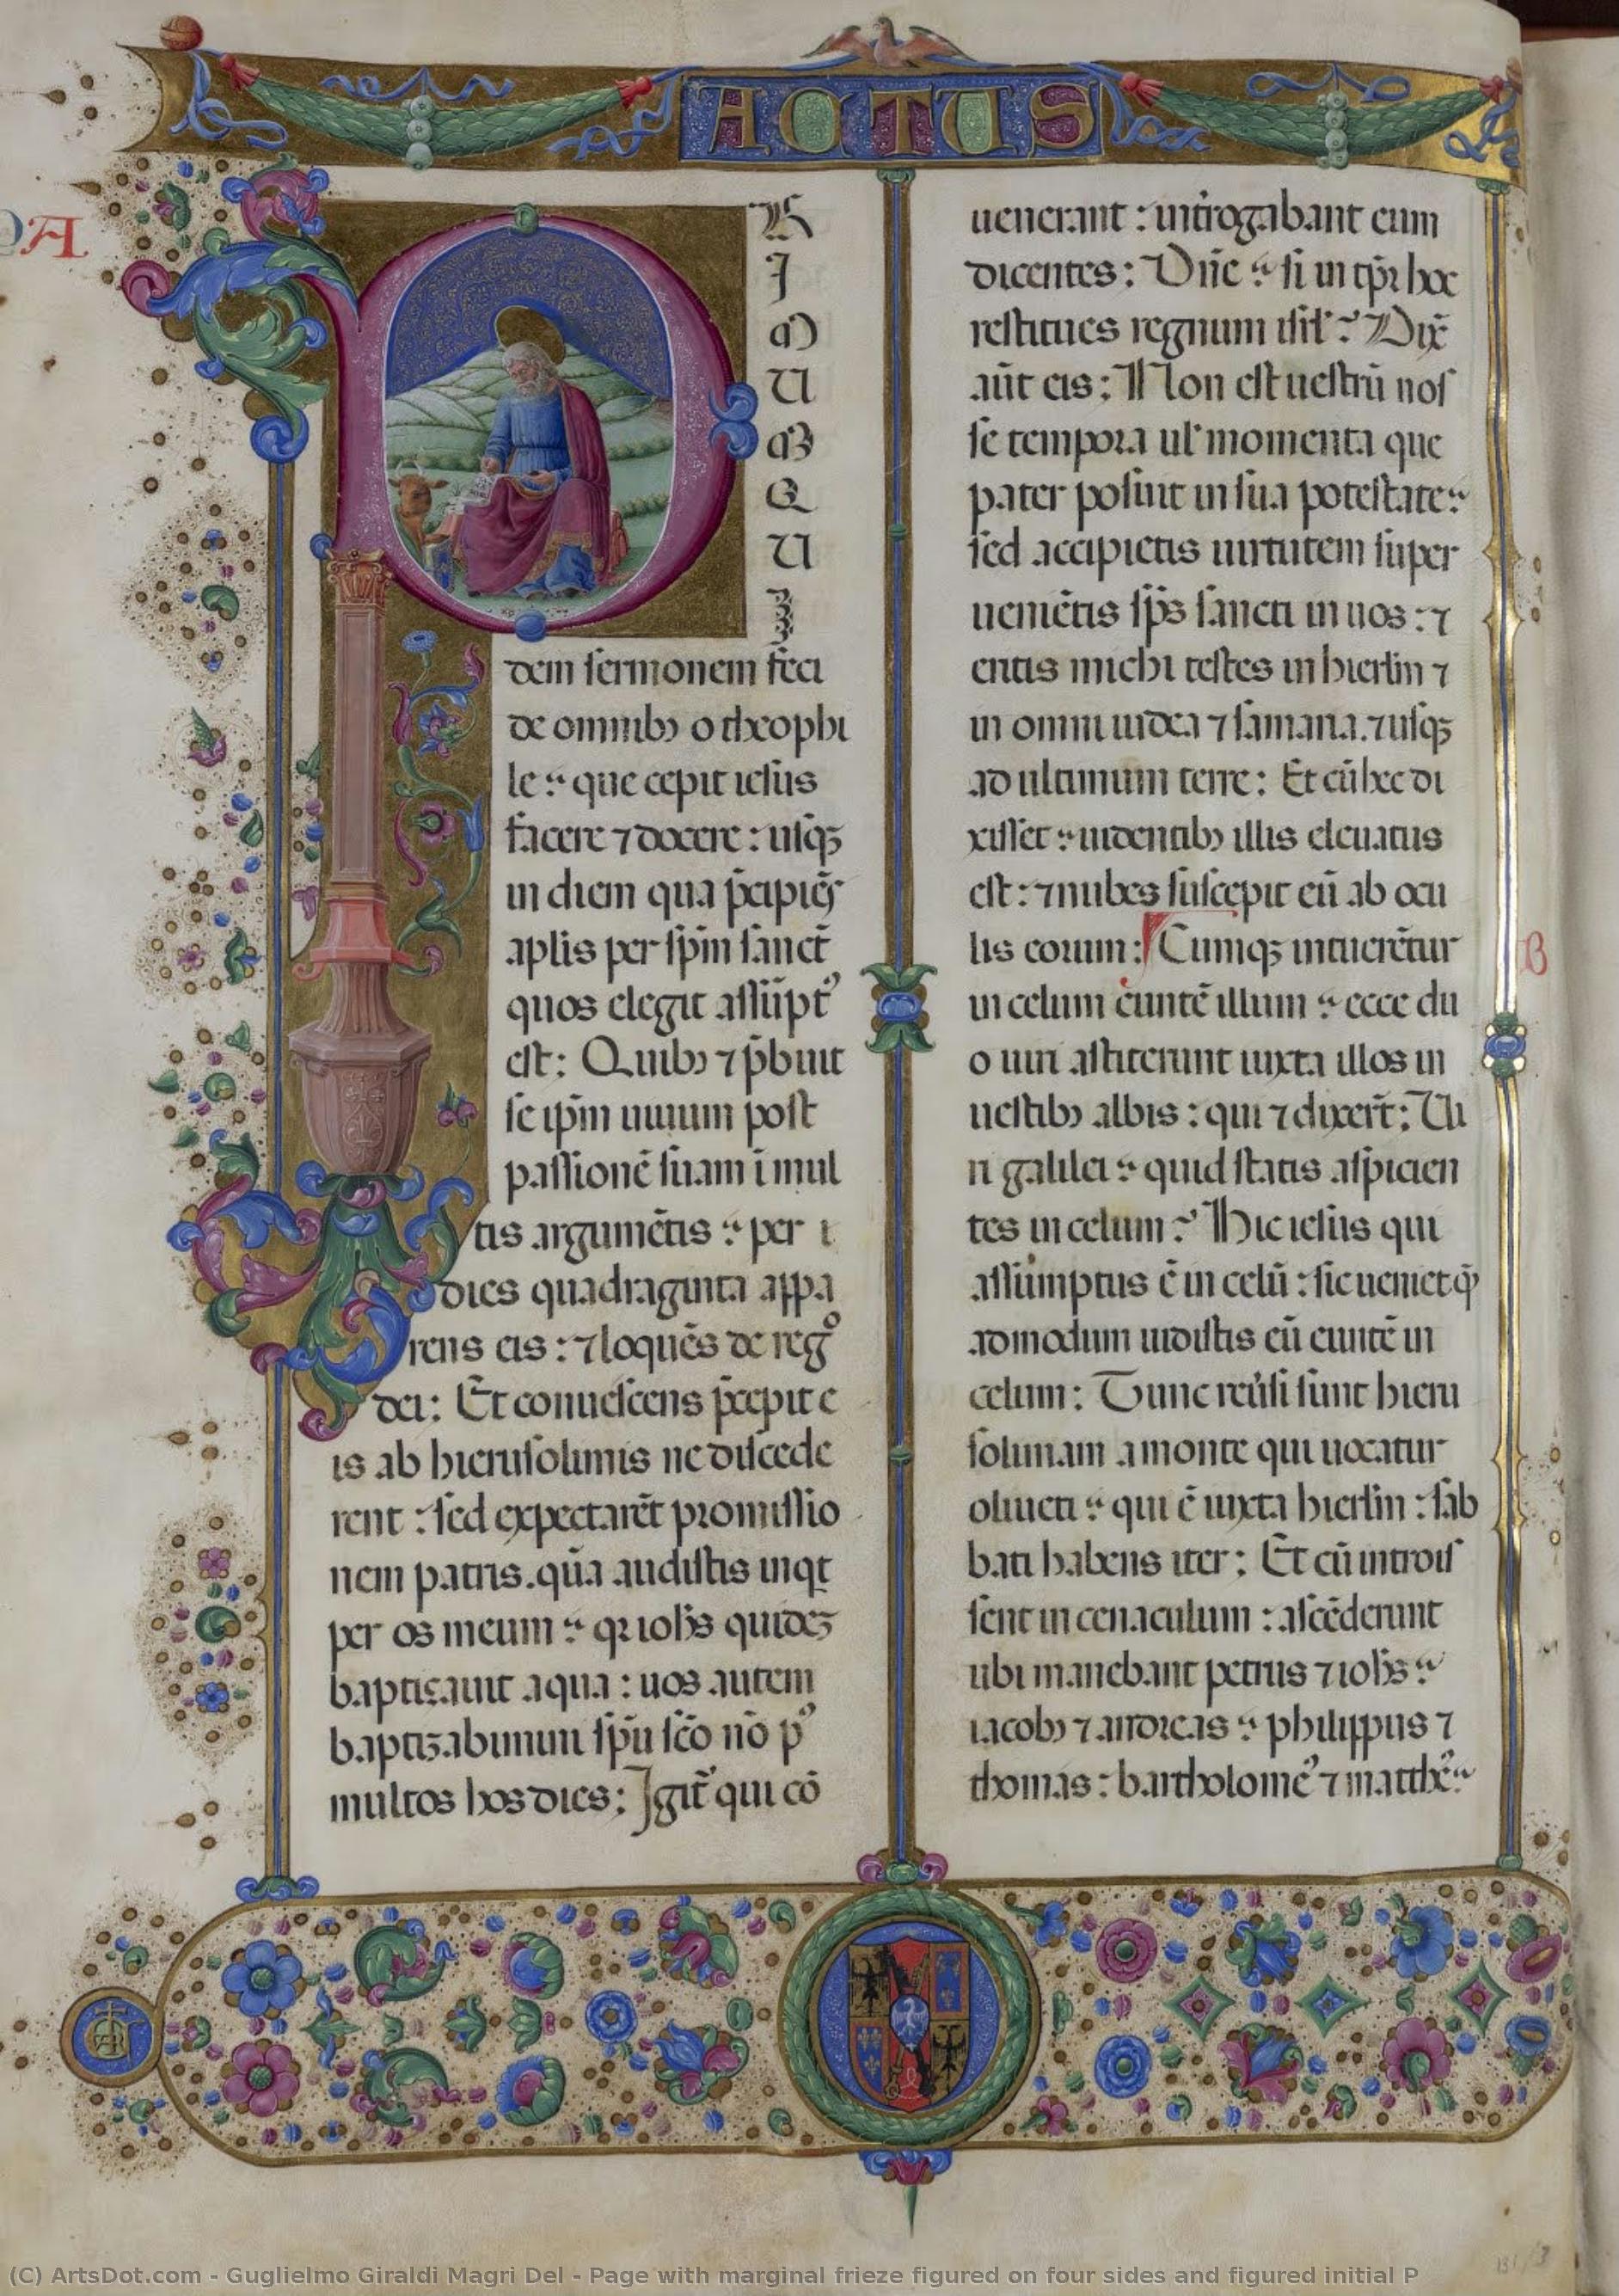 ACTUS
DA
P
R
I
M
U
M
Q
U
I
dem sermonem feci
de omnibꝰ o theophi
le : que cepit iesus
facere ⁊ docere : usqꝫ
in diem qua p̄cipiēs
aplis per sp̄m sanct̄
quos elegit assūpt᾽
est : Quibꝰ ⁊ p̄buit
se ip̄m uiuum post
passionē suam ī mul
tis argumētis : per
dies quadraginta appa
rens eis : ⁊ loquēs de reg°
dei : Et conuescens p̄cepit e
is ab hierusolimis ne discede
rent : sed expectarēt promissio
nem patris . quā audistis inqt
per os meum : qꝛ iohs̄ quideꝫ
baptizauit aqua : uos autem
baptizabimini sp̄u scō nō p᾽
multos hos dies : Igit᾽ qui cō
uenerant : int̄rogabant eum
dicentes : Dn̄e : si in tp̄r hoc
restitues regnum isrl̄ : Dix̄
aūt eis : Non est uestrū nos
se tempora ul᾽ momenta que
pater posuit in sua potestate :
sed accipietis uirtutem super
ueniētis sp̄s sancti in uos : ⁊
eritis michi testes in hierl̄m ⁊
in omni iudea ⁊ samaria . ⁊ usqꝫ
ad ultimum terre : Et cū hec di
xisset : uidentibꝰ illis eleuatus
est : ⁊ nubes suscepit eū ab ocu
lis eorum : Cumqꝫ intuerētur
B
in celum euntē illum : ecce du
o uiri astiterunt iuxta illos in
uestibꝰ albis : qui ⁊ dixer̄t : Ui
ri galilei : quid statis aspicien
tes in celum : Hic iesus qui
assumptus ē in celū : sic ueniet q̄
admodum uidistis eū euntē in
celum : Tunc reu᾽si sunt hieru
solimam a monte qui uocatur
oliueti : qui ē iuxta hierl̄m : sab
bati habens iter : Et cū introis
sent in cenaculum : ascēderunt
ubi manebant petrus ⁊ iohs̄ :
iacobꝰ ⁊ andreas : philippus ⁊
thomas : bartholome᾽ ⁊ matthe᾽ :
(C) ArtsDot.com - Guglielmo Giraldi Magri Del - Page with marginal frieze figured on four sides and figured initial P